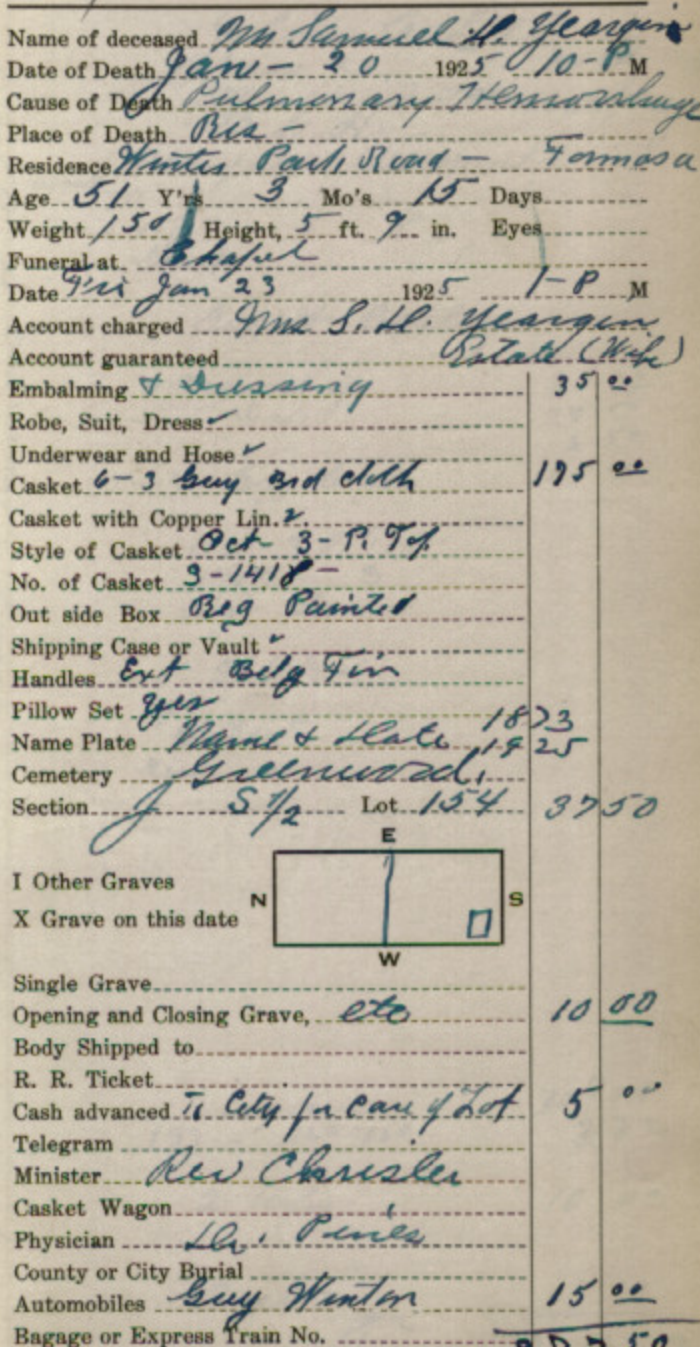 Name of deceased Mr Samuel H. Yeargin
Date of Death Jan - 20 1925 10-P M
Cause of Death Pulmonary Hemorrhage
Place of Death Res -
Residence Winter Park Road - Formosa
Age 51 Y'rs 3 Mo's 15 Days
Weight 150 Height, 5 ft. 9 in. Eyes
Funeral at Chapel
Date Fri Jan 23 1925 1-P M
Account charged Mrs S. H. Yeargin
Account guaranteed Estate (Wife)
Embalming & Dressing 35 00
Robe, Suit, Dress
Underwear and Hose
Casket 6-3 Grey Brd cloth 195 00
Casket with Copper Lin.
Style of Casket Oct- 3-P. Top
No. of Casket 3-1418 -
Out side Box Reg Painted
Shipping Case or Vault
Handles Ext Fin
Pillow Set yes
Name Plate Name & Date 1873 1925
Cemetery Greenwood
Section J S 1/2 Lot 154 37 50
E
I Other Graves
N S
X Grave on this date
W
Single Grave
Opening and Closing Grave, etc 10 00
Body Shipped to
R. R. Ticket
Cash advanced To City for Care of Lot 5 00
Telegram
Minister Rev Chrisler
Casket Wagon
Physician Dr.
County or City Burial
Automobiles Guy Winton 15 00
Bagage or Express Train No. 50